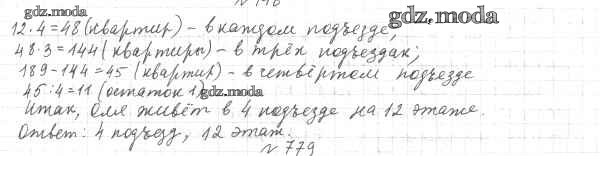 gdz.moda
12·4=48 (квартир) - в каждом подъезде;
gdz.moda
48·3=144 (квартиры) - в трёх подъездах;
189-144=45 (квартир) - в четвёртом подъезде
45:4=11 (остаток 1) gdz.moda
Итак, Оля живёт в 4 подъезде на 12 этаже.
Ответ: 4 подъезд, 12 этаж.
№ 779